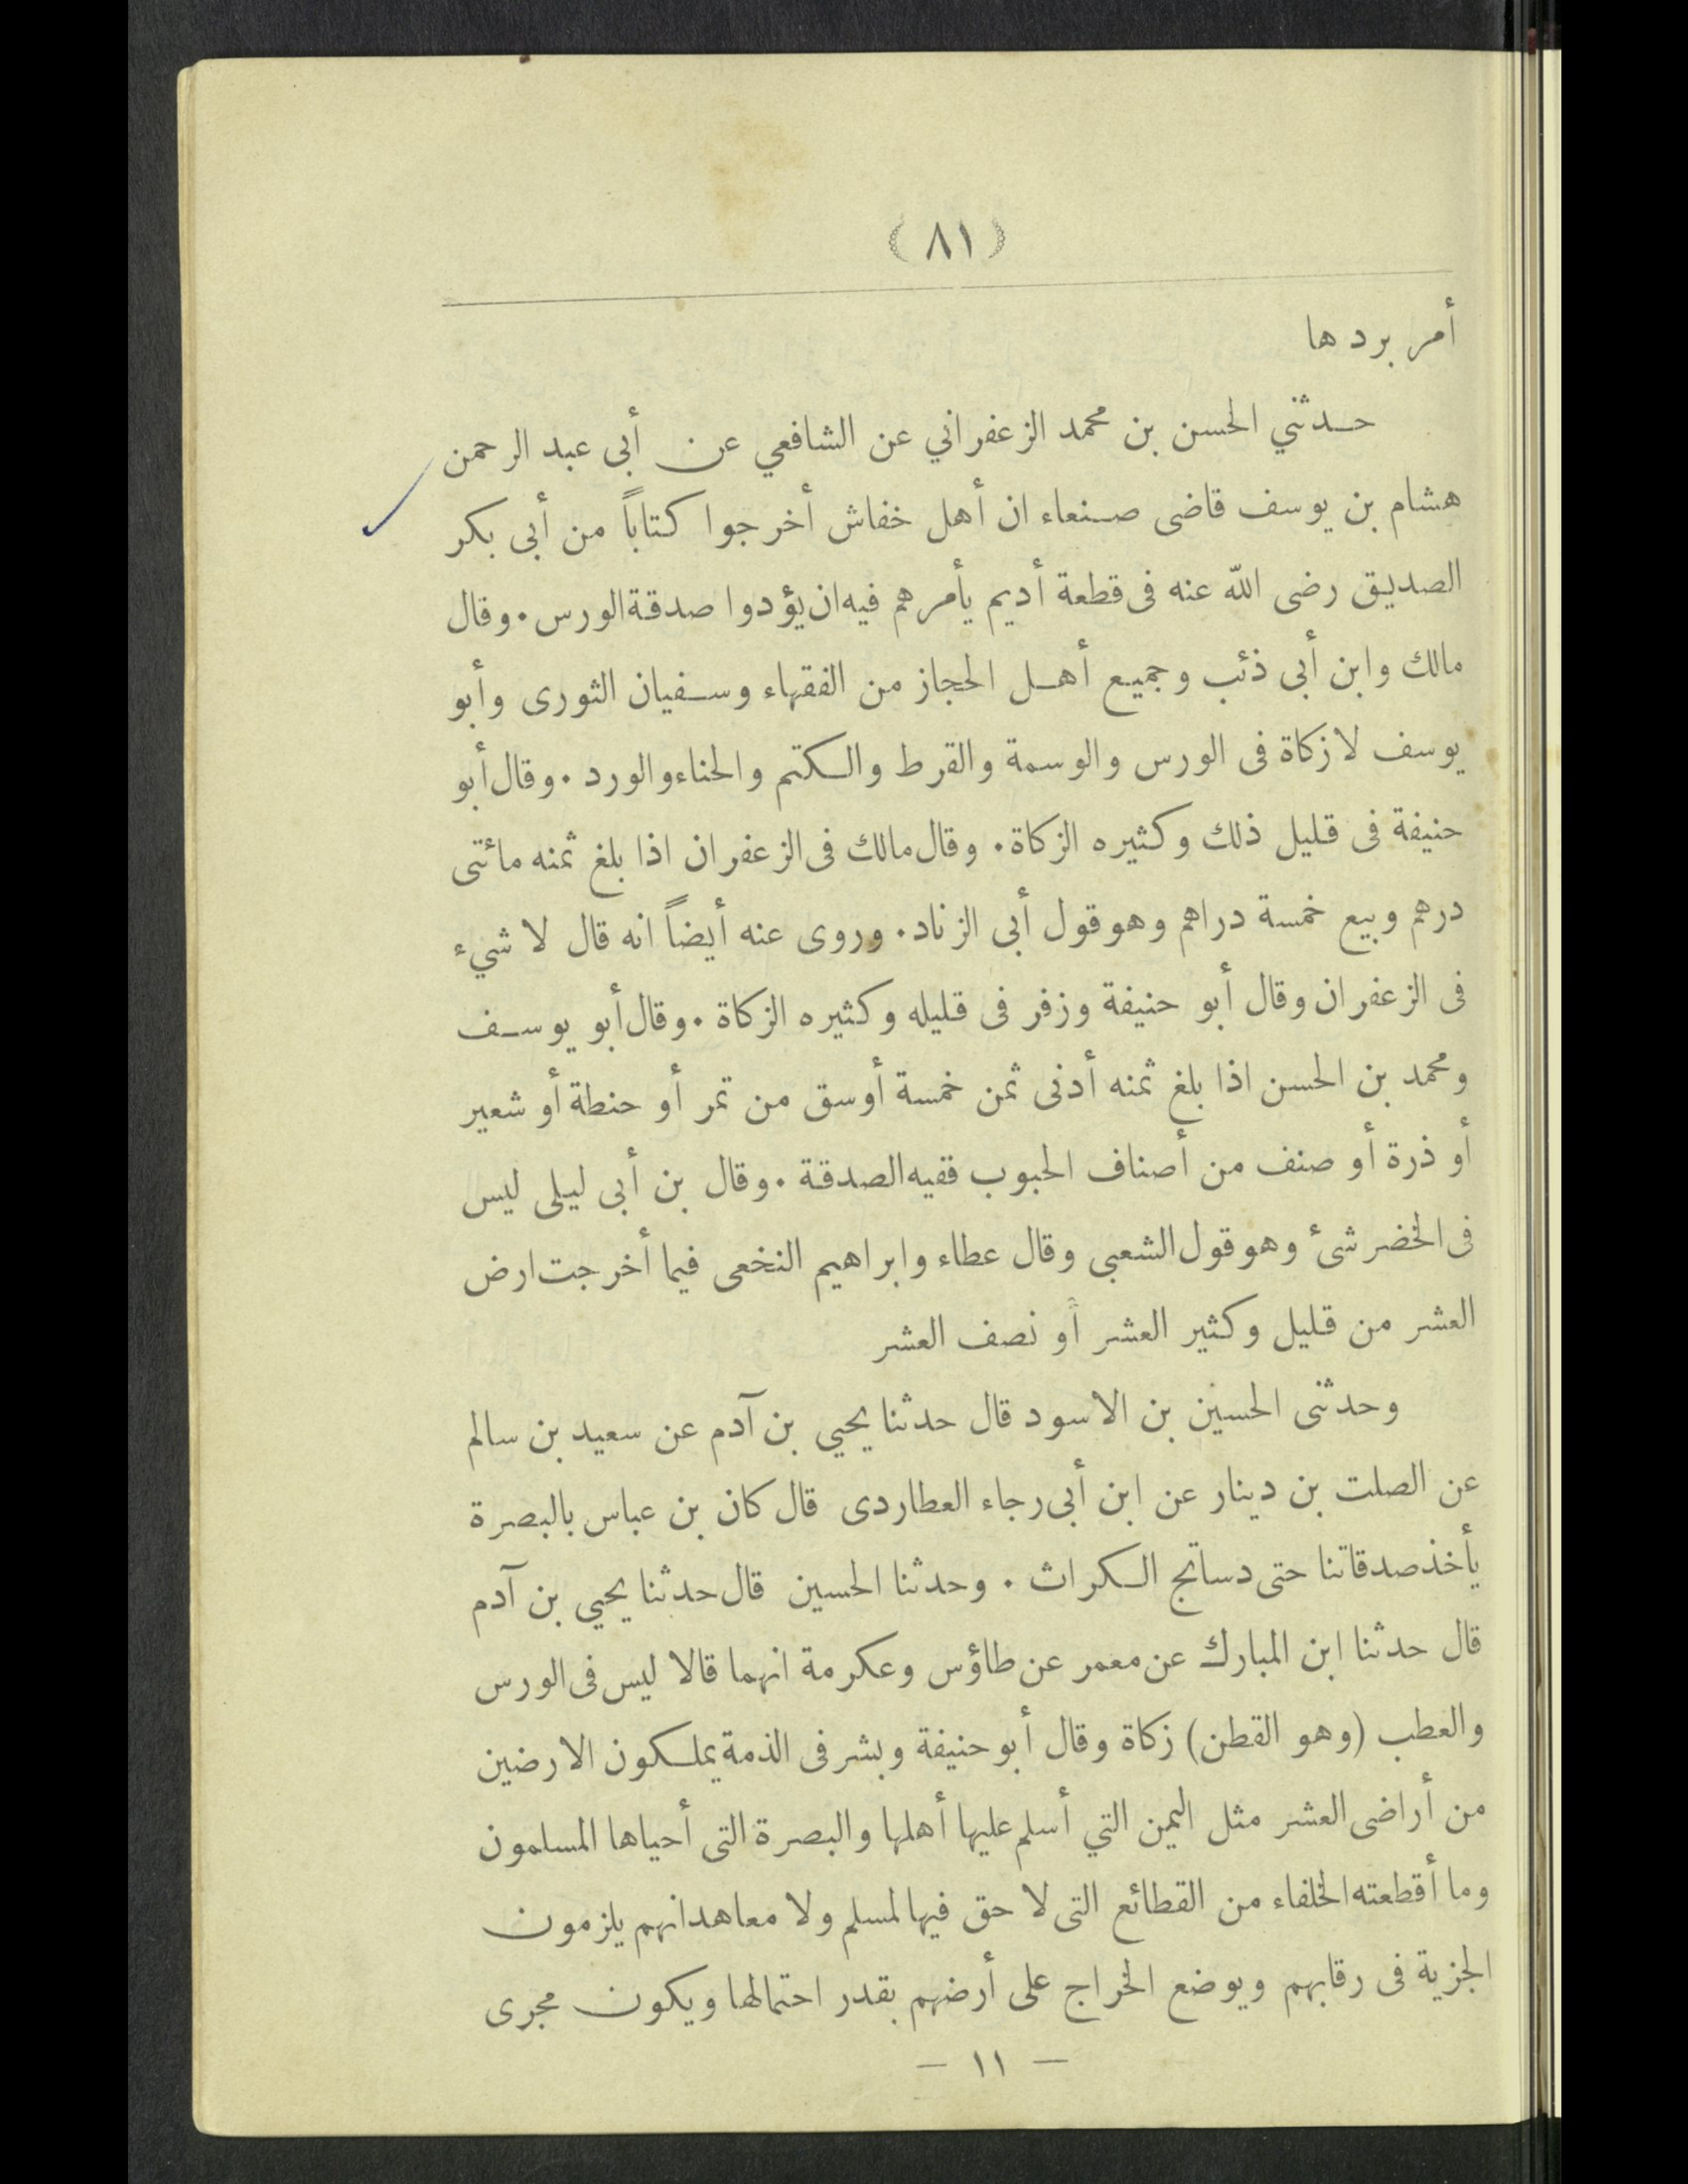 (٨١)
أمر بردها
حدثني الحسن بن محمد الزعفراني عن الشافعي عن أبى عبد الرحمن
هشام بن يوسف قاضى صنعاء ان أهل خفاش أخرجوا كتاباً من أبى بكر
الصديق رضى الله عنه فى قطعة أديم يأمرهم فيه ان يؤدوا صدقة الورس . وقال
مالك وابن أبى ذئب وجميع أهل الحجاز من الفقهاء وسفيان الثورى وأبو
يوسف لا زكاة فى الورس والوسمة والقرط والكتم والحناء والورد . وقال أبو
حنيفة فى قليل ذلك وكثيره الزكاة . وقال مالك فى الزعفران اذا بلغ ثمنه مائتى
درهم وبيع خمسة دراهم وهو قول أبى الزناد . وروى عنه أيضاً انه قال لا شيء
فى الزعفران وقال أبو حنيفة وزفر فى قليله وكثيره الزكاة . وقال أبو يوسف
ومحمد بن الحسن اذا بلغ ثمنه أدنى ثمن خمسة أوسق من تمر أو حنطة أو شعير
أو ذرة أو صنف من أصناف الحبوب ففيه الصدقة . وقال بن أبى ليلى ليس
فى الخضر شئ وهو قول الشعبى وقال عطاء وابراهيم النخعى فيما أخرجت ارض
العشر من قليل وكثير العشر أو نصف العشر
وحدثنى الحسين بن الاسود قال حدثنا يحيي بن آدم عن سعيد بن سالم
عن الصلت بن دينار عن ابن أبى رجاء العطاردى قال كان بن عباس بالبصرة
يأخذ صدقاتنا حتى دساتج الكراث . وحدثنا الحسين قال حدثنا يحيي بن آدم
قال حدثنا ابن المبارك عن معمر عن طاؤس وعكرمة انهما قالا ليس فى الورس
والعطب (وهو القطن) زكاة وقال أبو حنيفة وبشر فى الذمة يملكون الارضين
من أراضى العشر مثل اليمن التي أسلم عليها أهلها والبصرة التى أحياها المسلمون
وما أقطعته الخلفاء من القطائع التى لا حق فيها لمسلم ولا معاهد انهم يلزمون
الجزية فى رقابهم ويوضع الخراج على أرضهم بقدر احتمالها ويكون مجرى
— ١١ —